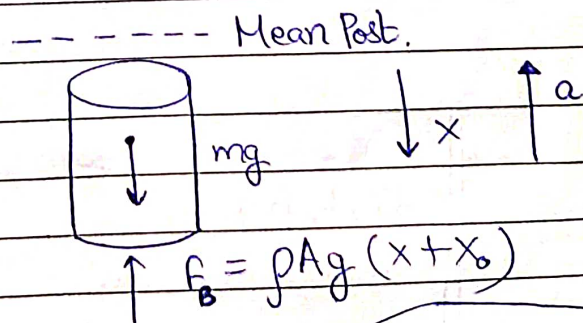 ------ Mean Post.
a
x
mg
F_B = ρAg (x+x₀)